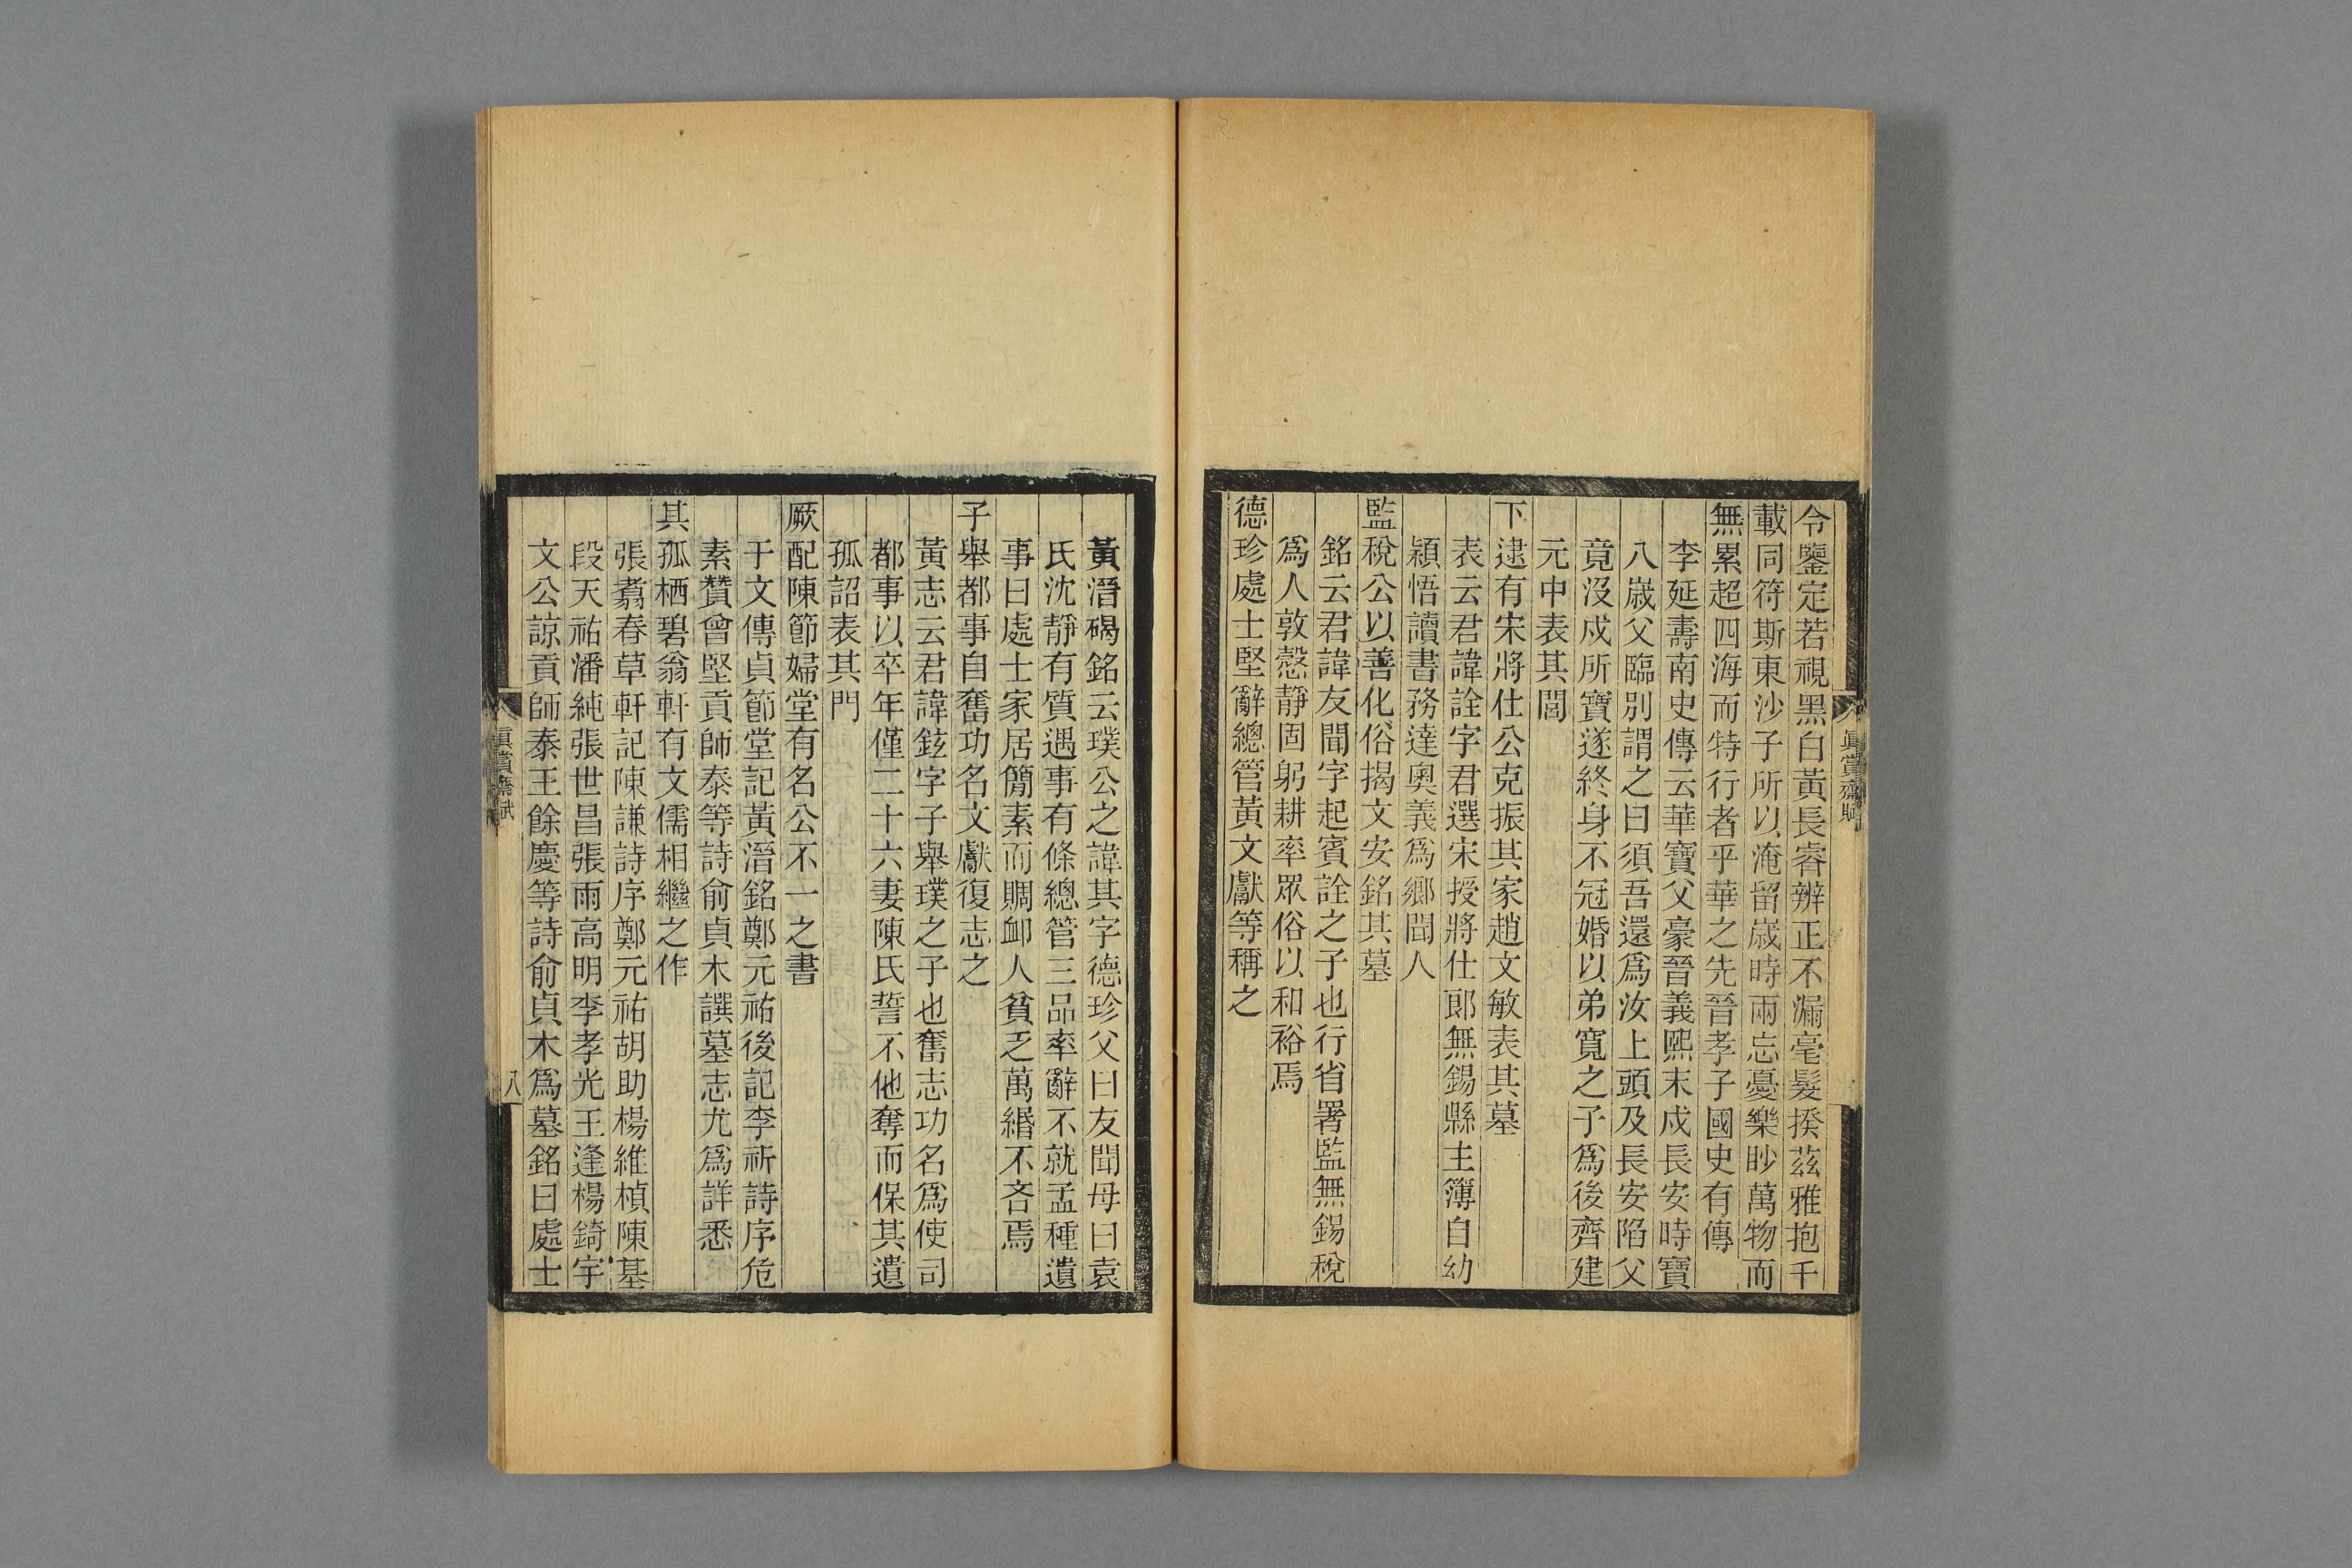 令鑒定若視黑白黃長睿辨正不漏毫髮揆茲雅抱千
載同符斯東沙子所以淹留歲時兩忘憂樂眇萬物而
無累超四海而特行者乎華之先晉孝子國史有傳
李延壽南史傳云華寶父豪晉義熙末戍長安時寶
八歲父臨別謂之曰須吾還爲汝上頭及長安陷父
竟沒戍所寶遂終身不冠婚以弟寬之子爲後齊建
元中表其閭
下逮有宋將仕公克振其家趙文敏表其墓
表云君諱詮字君選宋授將仕郎無錫縣主簿自幼
穎悟讀書務達奧義爲鄉聞人
監稅公以善化俗揭文安銘其墓
銘云君諱友聞字起賓詮之子也行省署監無錫稅
爲人敦慤靜固躬耕率眾俗以和裕焉
德珍處士堅辭總管黃文獻等稱之
眞賞齋賦
黃溍碣銘云璞公之諱其字德珍父曰友聞母曰袁
氏沈靜有質遇事有條總管三品率辭不就孟種遺
事曰處士家居簡素而賙卹人貧乏萬緡不吝焉
子舉都事自奮功名文獻復志之
黃志云君諱鉉字子舉璞之子也奮志功名爲使司
都事以卒年僅二十六妻陳氏誓不他奪而保其遺
孤詔表其門
厥配陳節婦堂有名公不一之書
于文傳貞節堂記黃溍銘鄭元祐後記李祈詩序危
素贊曾堅貢師泰等詩俞貞木譔墓志尤爲詳悉
其孤栖碧翁軒有文儒相繼之作
張翥春草軒記陳謙詩序鄭元祐胡助楊維楨陳基
段天祐潘純張世昌張雨高明李孝光王逢楊錡宇
文公諒貢師泰王餘慶等詩俞貞木爲墓銘曰處士
眞賞齋賦
八